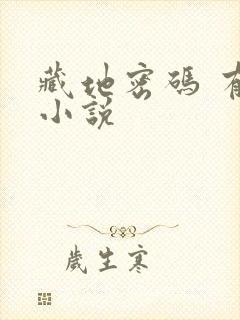 藏地密碼
小說
歲生寒